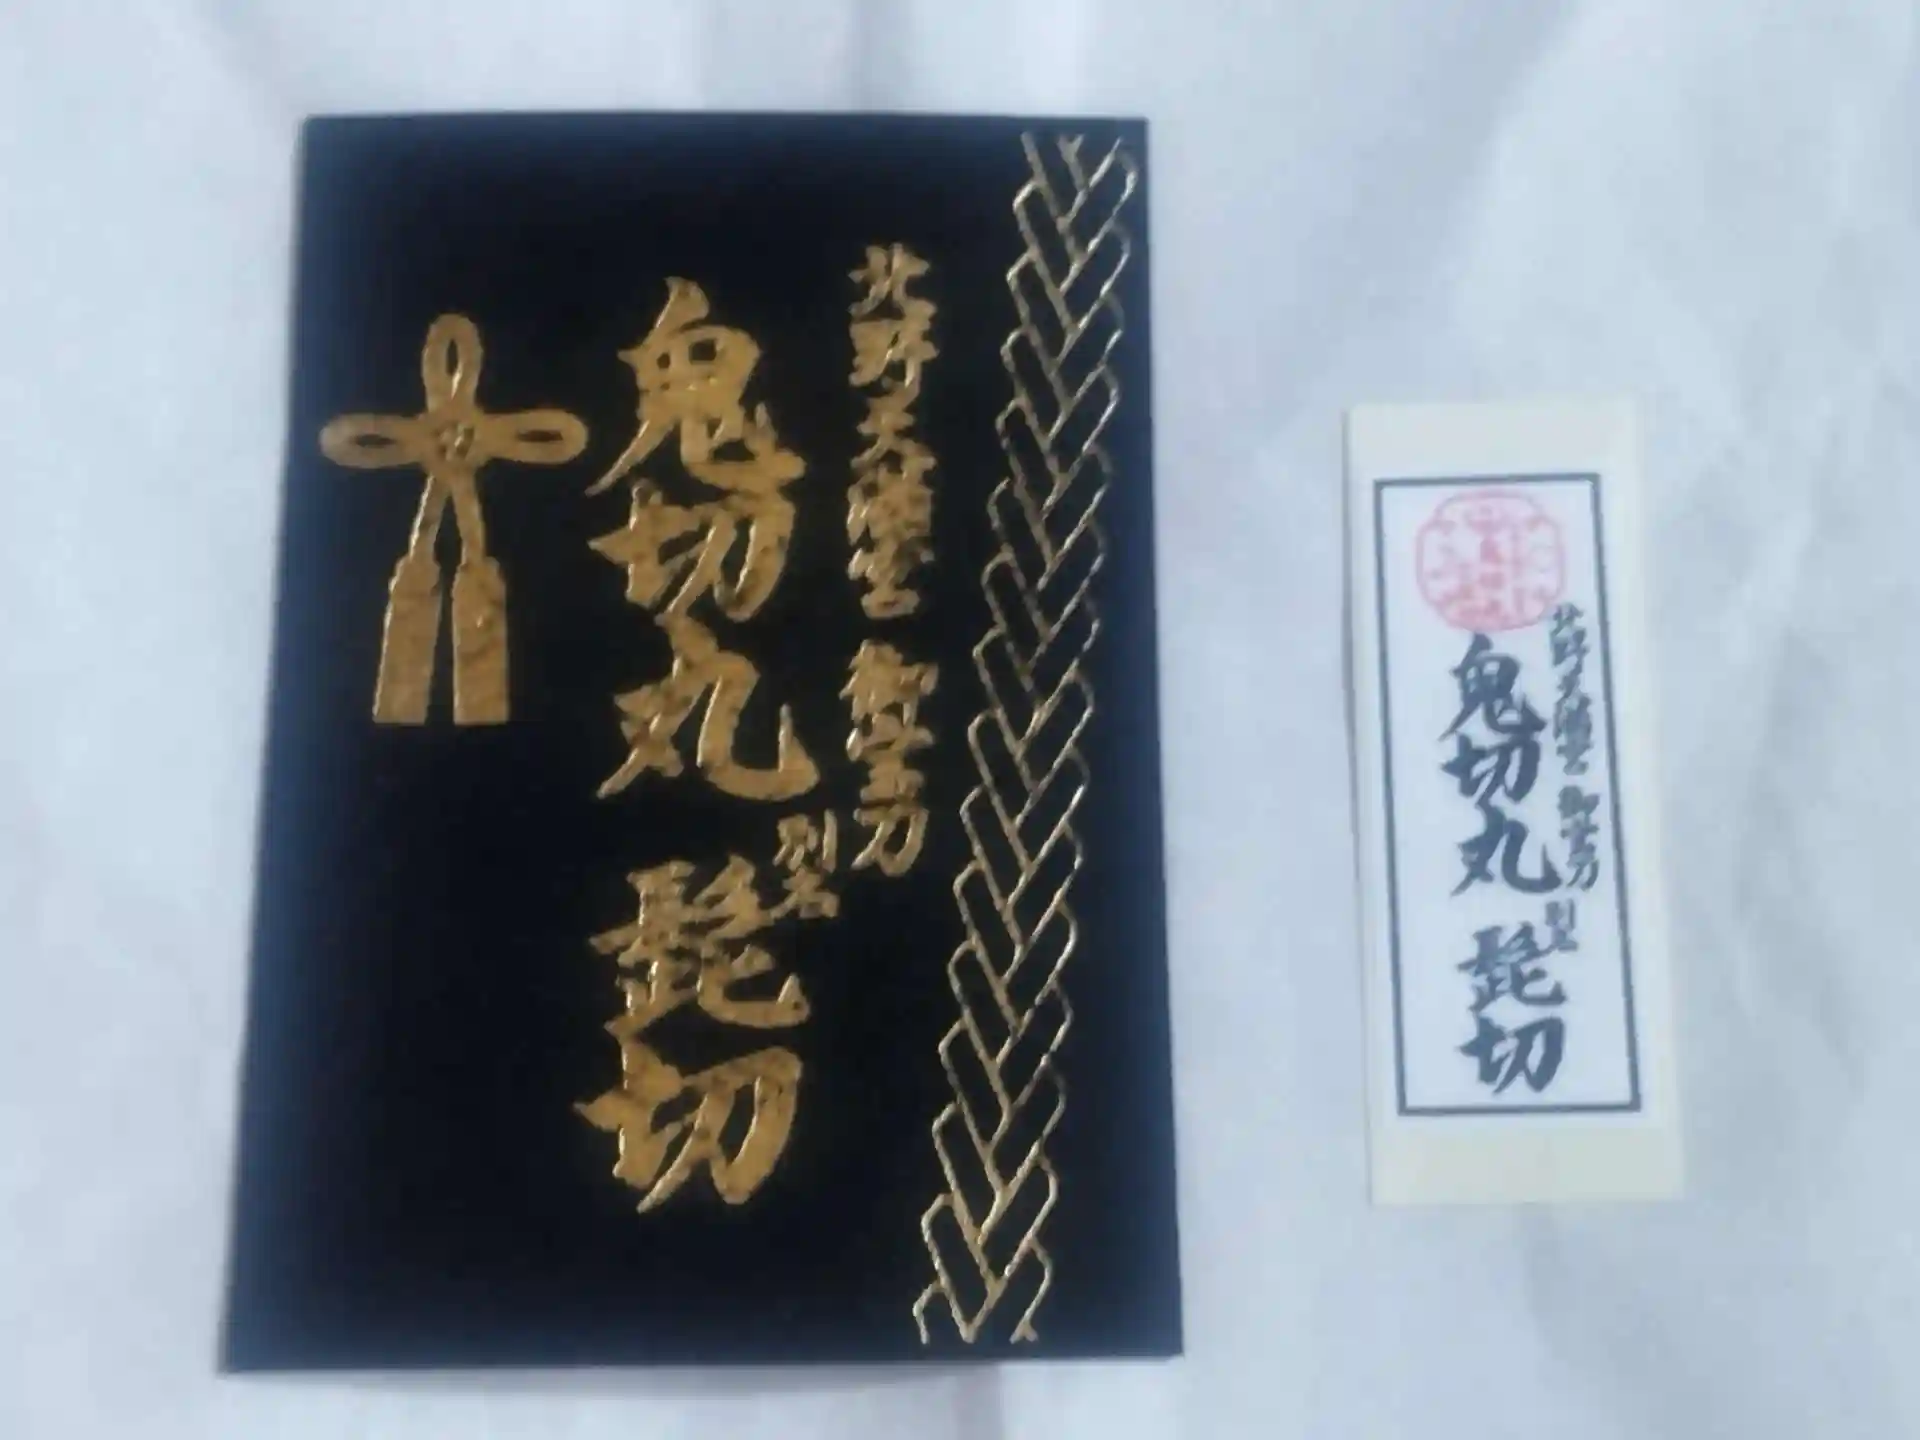 北野天満宮 御宝刀
鬼切丸 別名 髭切
北野天満宮 御宝刀
鬼切丸 別名 髭切